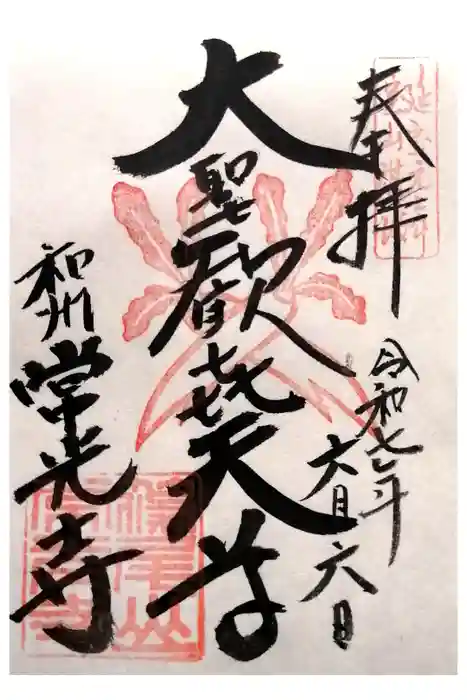 奉拝
令和七年
六月六日
大聖歓㐂天尊
和州
常光寺